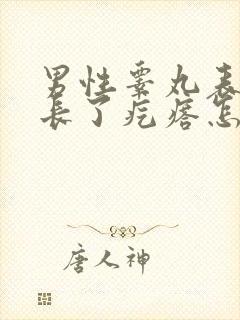 男性睾丸表
长了疙瘩怎
唐人神